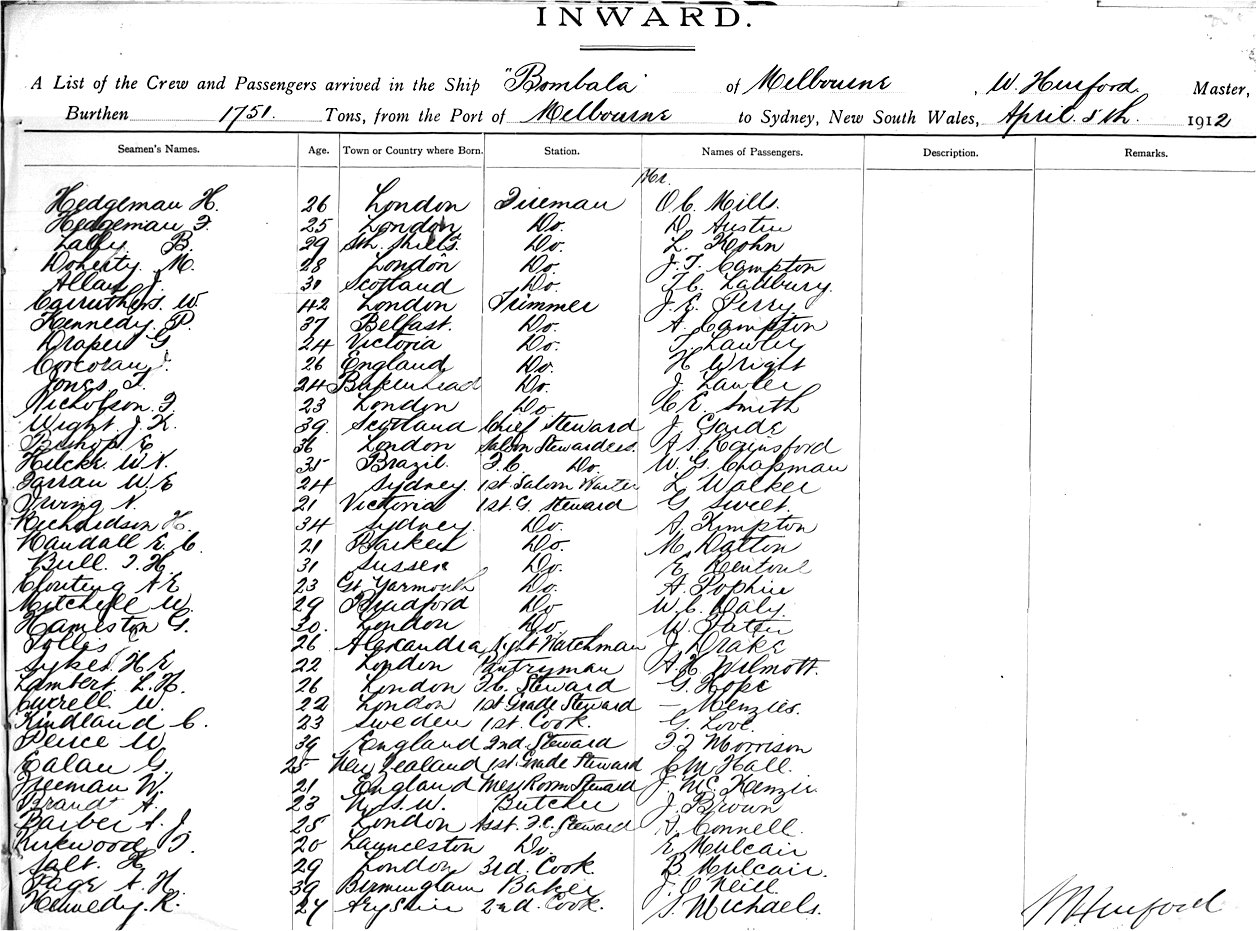 INWARD.
A List of the Crew and Passengers arrived in the Ship "Bombala" of Melbourne, W. Hurford Master,
Burthen 1751. Tons, from the Port of Melbourne to Sydney, New South Wales, April 8th. 1912
Seamen's Names. Age. Town or Country where Born. Station. Names of Passengers. Description. Remarks.
Mr.
Hedgeman H. 26 London Fireman O C. Mills.
Hedgeman F. 25 London Do. D. Austin
B. 29 Sth. Shills. Do. L. Kohn
Doherty. M. 28 London Do. J. T. Campton
Allan J. 31 Scotland Do. T. C. Ladbury.
Carruthers. W. 42 London Trimmer J. E. Perry.
Kennedy. P. 37 Belfast. Do. A. Campton
Draper G 24 Victoria Do. Lawler
Corcoran J. 26 England Do. H Wright
Jones. T. 24 Do. J. Lawler
Nicholson. F. 23 London Do C. E. Smith
Wight J. K. 39 Scotland Chief Steward J. Garde
Bishop E 36 London Saloon Stewardess. A S. Rainsford
W. 35 Brazil. F. C. Do. W. G. Chapman
Farran W E 24 Sydney. 1st Saloon Waiter L. Walker
Irving N. 21 Victoria 1st. G. Steward G Sweet.
Richardson H. 34 Sydney. Do. A. Kimpton
Randall E. C. 21 Do. M. Datton
Bull. T. H. 31 Sussex Do. E Rentoul
Clouting A E 23 Gt. Yarmouth Do. A. Pophin
Mitchell W. 29 Bradford Do W. C. Daly.
G. 30. London Do.
26 Alexandra Night Watchman J Drake
Sykes. H E 22 London Pantryman A. H Wilmott.
Lambert. L. H. 26 London F. C. Steward G. Hope
Currell W. 22 London 1st Grade Steward — Menzies.
Kindland C. 23 Sweden 1st. Cook. G. Love.
Peirce W 39 England 2nd. Steward Morrison
Ealau G. 25 New Zealand 1st Grade Steward C M. Hall.
Freeman W. 21 England Mess Room Steward J. McKenzie
Brandt A. 23 N. S. W. Butcher J. Brown
Barber A. J. 25 London Asst. F. C. Steward A. Connell.
Kirkwood. T. 20 Launceston Do. E Mulcair
Salt. H 29 London 3rd. Cook. B. Mulcair.
Page A. H. 39 Birmingham Baker J. O'Neill
Kennedy. R. 27 Aryshire 2nd. Cook. S. Michaels.
W Hurford